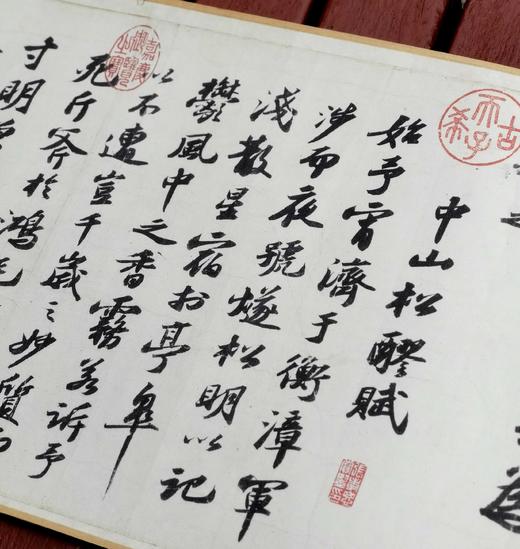 古希天子
中山松醪賦
始予宵濟于衡漳軍
涉而夜號燧松明以記
淺散星宿於亭皋
鬱風中之香霧若訴予
以不遭豈千歲之妙質而
死斤斧於鴻毛
寸明曾
嘉慶御覽之寶